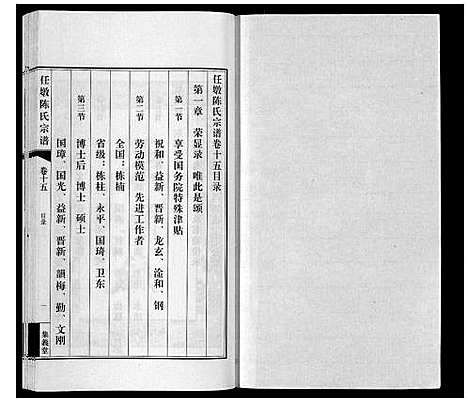 任墩陈氏宗谱卷十五目录
第一章 荣显录 唯此是颂
第一节 享受国务院特殊津贴
祝和、益新、晋新、龙玄、淦和、钢
第二节 劳动模范 先进工作者
全国：栋楠
省级：栋柱、永平、国琦、卫东
第三节 博士后 博士 硕士
国璋、国光、益新、晋新、韻梅、勤、文刚
任墩陈氏宗谱
卷十五
目录
一
集義堂